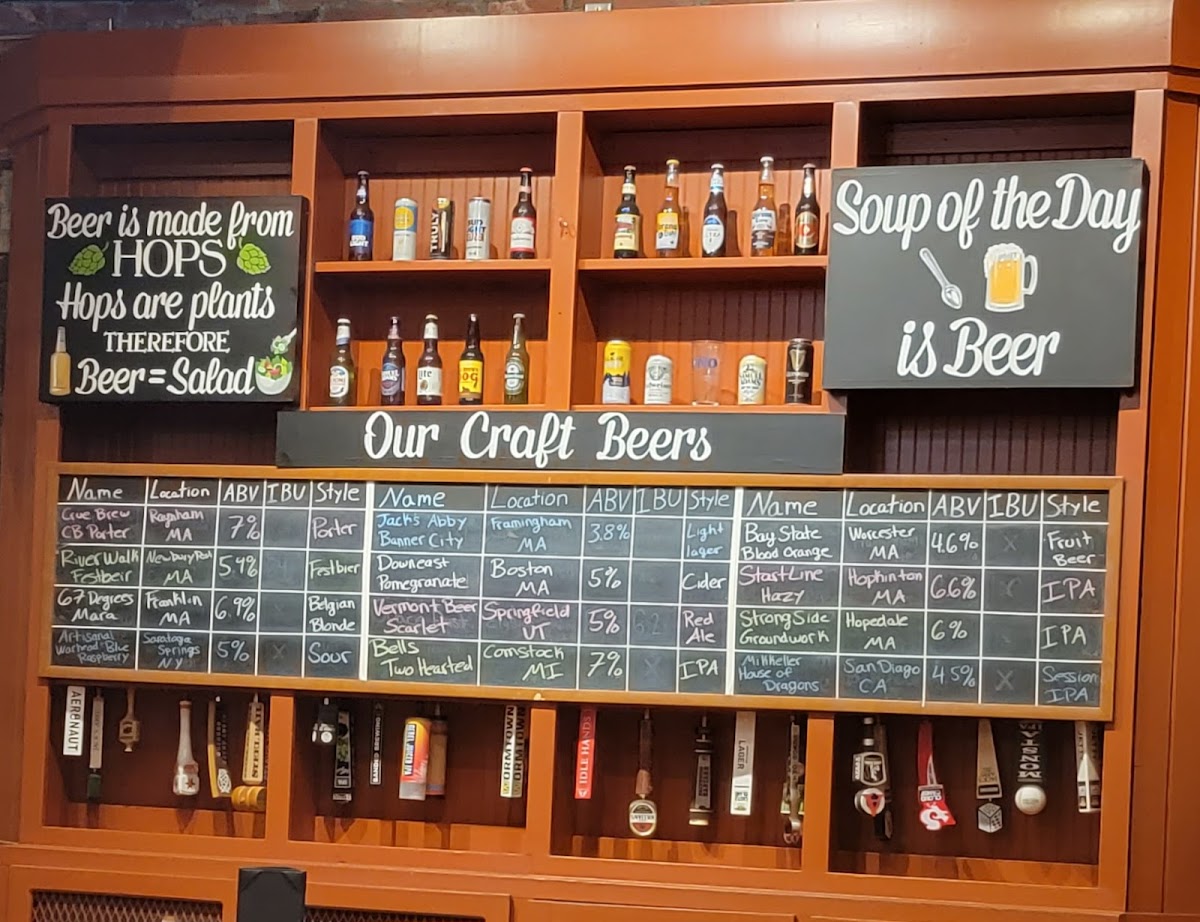 Beer is made from
HOPS
Hops are plants
THEREFORE
Beer = Salad
TRULY
Soup of the Day
is Beer
Our Craft Beers
Name Location ABV IBU Style
Crue Brew Raynham 7% Porter
CB Porter MA
River Walk Newbury Port 5.4% Festbier
Festbeir MA
67 Degrees Franklin 6.9% Belgian
Mara MA Blonde
Artisanal Saratoga 5% X Sour
Warhead Blue Springs
Raspberry NY
Name Location ABV IBU Style
Jack's Abby Framingham 3.8% Light
Banner City MA lager
Downeast Boston 5% Cider
Pomegranate MA
Vermont Beer Springfield 5% Red
Scarlet VT Ale
Bells Comstock 7% X IPA
Two Hearted MI
Name Location ABV IBU Style
Bay State Worcester 4.6% X Fruit
Blood Orange MA Beer
Start Line Hopkinton 6.6% IPA
Hazy MA
Strong Side Hopedale 6% IPA
Groundwork MA
Mikkeller San Diago 4.5% X Session
House of CA IPA
Dragons
AERONAUT
STEEL RAIL
WORMTOWN
WORMTOWN
IDLE HANDS
LAGER